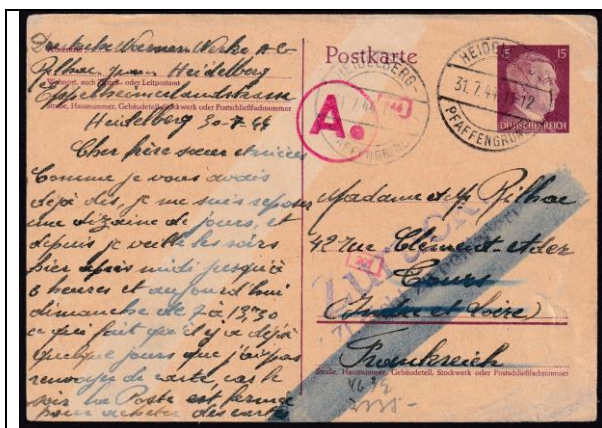 Deutsche Waren Werke A-G
Rilhac Heidelberg
Wohnort, auch Zustell- oder Leitpostamt
Eppelheimerlandstrasse
Straße, Hausnummer, Gebäudeteil, Stockwerk oder Postschließfachnummer
Heidelberg 30-7-44
Cher frère sœur et nièces
Comme je vous avais
déjà dis, je me suis reposé
une dizaine de jours, et
depuis je veille les soirs
hier après midi jusqu'à
6 heures et aujourd'hui
dimanche de 7 à 13h30
ce qui fait qu'il y a déjà
quelque jours que j'ai pas
renvoyer de carte, car le
soir la Poste est fermé
pour acheter des cartes
Postkarte
HEIDELBERG-
PFAFFENGRUND
A.
HEIDELBERG
31.7.44
12
PFAFFENGRUND
15 15
DEUTSCHES REICH
Madame et M. Rilhac
42 rue Clément-Ader
Zurück
Tours
(Indre et Loire)
Frankreich
Straße, Hausnummer, Gebäudeteil, Stockwerk oder Postschließfachnummer